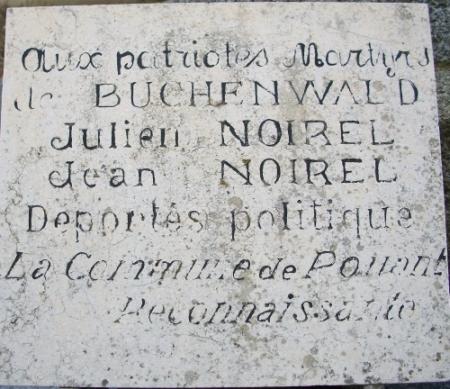 aux patriotes Martyrs
de BUCHENWALD
Julien NOIREL
Jean NOIREL
Deportés politique
La Commune de Pouant
Reconnaissante